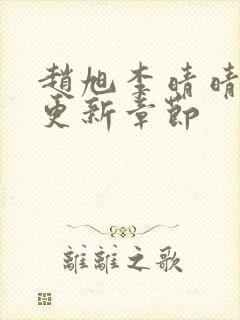 趙旭李晴晴
更新章節
離離之歌